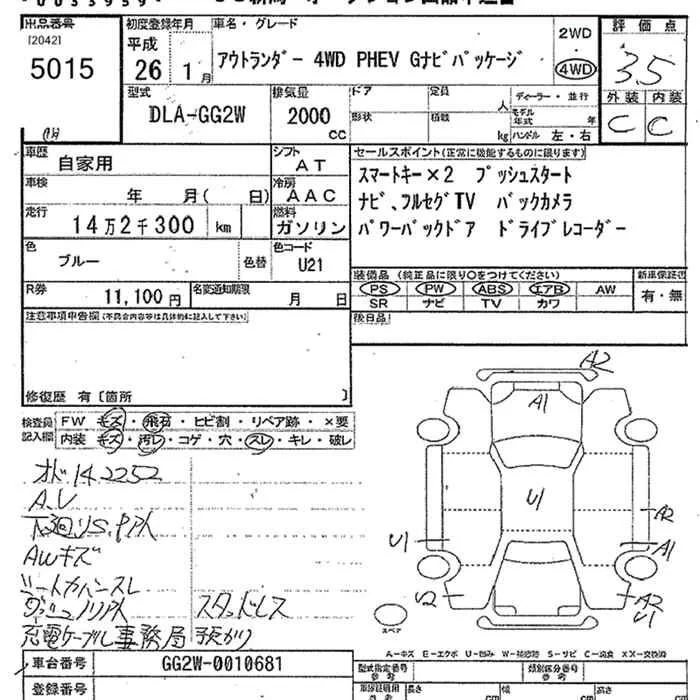 出品番号
[2042]
5015
初度登録年月
平成
26 1月
車名・グレード
アウトランダー 4WD PHEV Gナビパッケージ
2WD
4WD
評価点
3.5
外装 内装
C C
型式
DLA-GG2W
排気量
2000
CC
ドア
定員
人
形状
積載
kg
ディーラー・並行
モデル年式
年
ハンドル 左・右
車歴
自家用
シフト
AT
車検
年 月( 日)
冷房
AAC
走行
14万2千300 km
燃料
ガソリン
色
ブルー
色替
色コード
U21
R券
11,100円
名変通知期限
月 日
セールスポイント(正常に機能するものに限ります)
スマートキー×2 プッシュスタート
ナビ、フルセグTV バックカメラ
パワーバックドア ドライブレコーダー
装備品 (純正品に限り○をつけてください)
新車保証書
PS PW ABS エアB AW
有・無
SR ナビ TV カワ
後日品
注意事項申告欄(不具合内容等は具体的に記入して下さい)
修復歴 有〔箇所 〕
検査員記入欄
FW キズ・飛石・ヒビ割・リペア跡・×要
内装 キズ・汚レ・コゲ・穴・スレ・キレ・破レ
オド142252
A.V
AWキズ
シートカバースレ
スタッドレス
充電ケーブル事務局預かり
A2
A1
U1
A2
U1
A1
U2
A2
U1
スペア
A-キズ E-エクボ U-凹み W-補修跡 S-サビ C-腐食 XX-交換済
車台番号
GG2W-0010681
登録番号
型式指定番号
類別区分番号
長さ
cm
幅
cm
高さ
cm